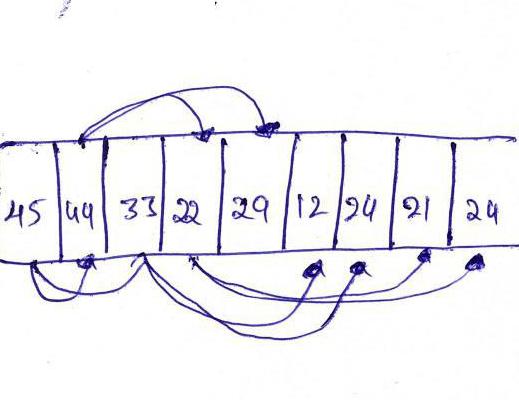 45 44 33 22 29 12 24 21 24